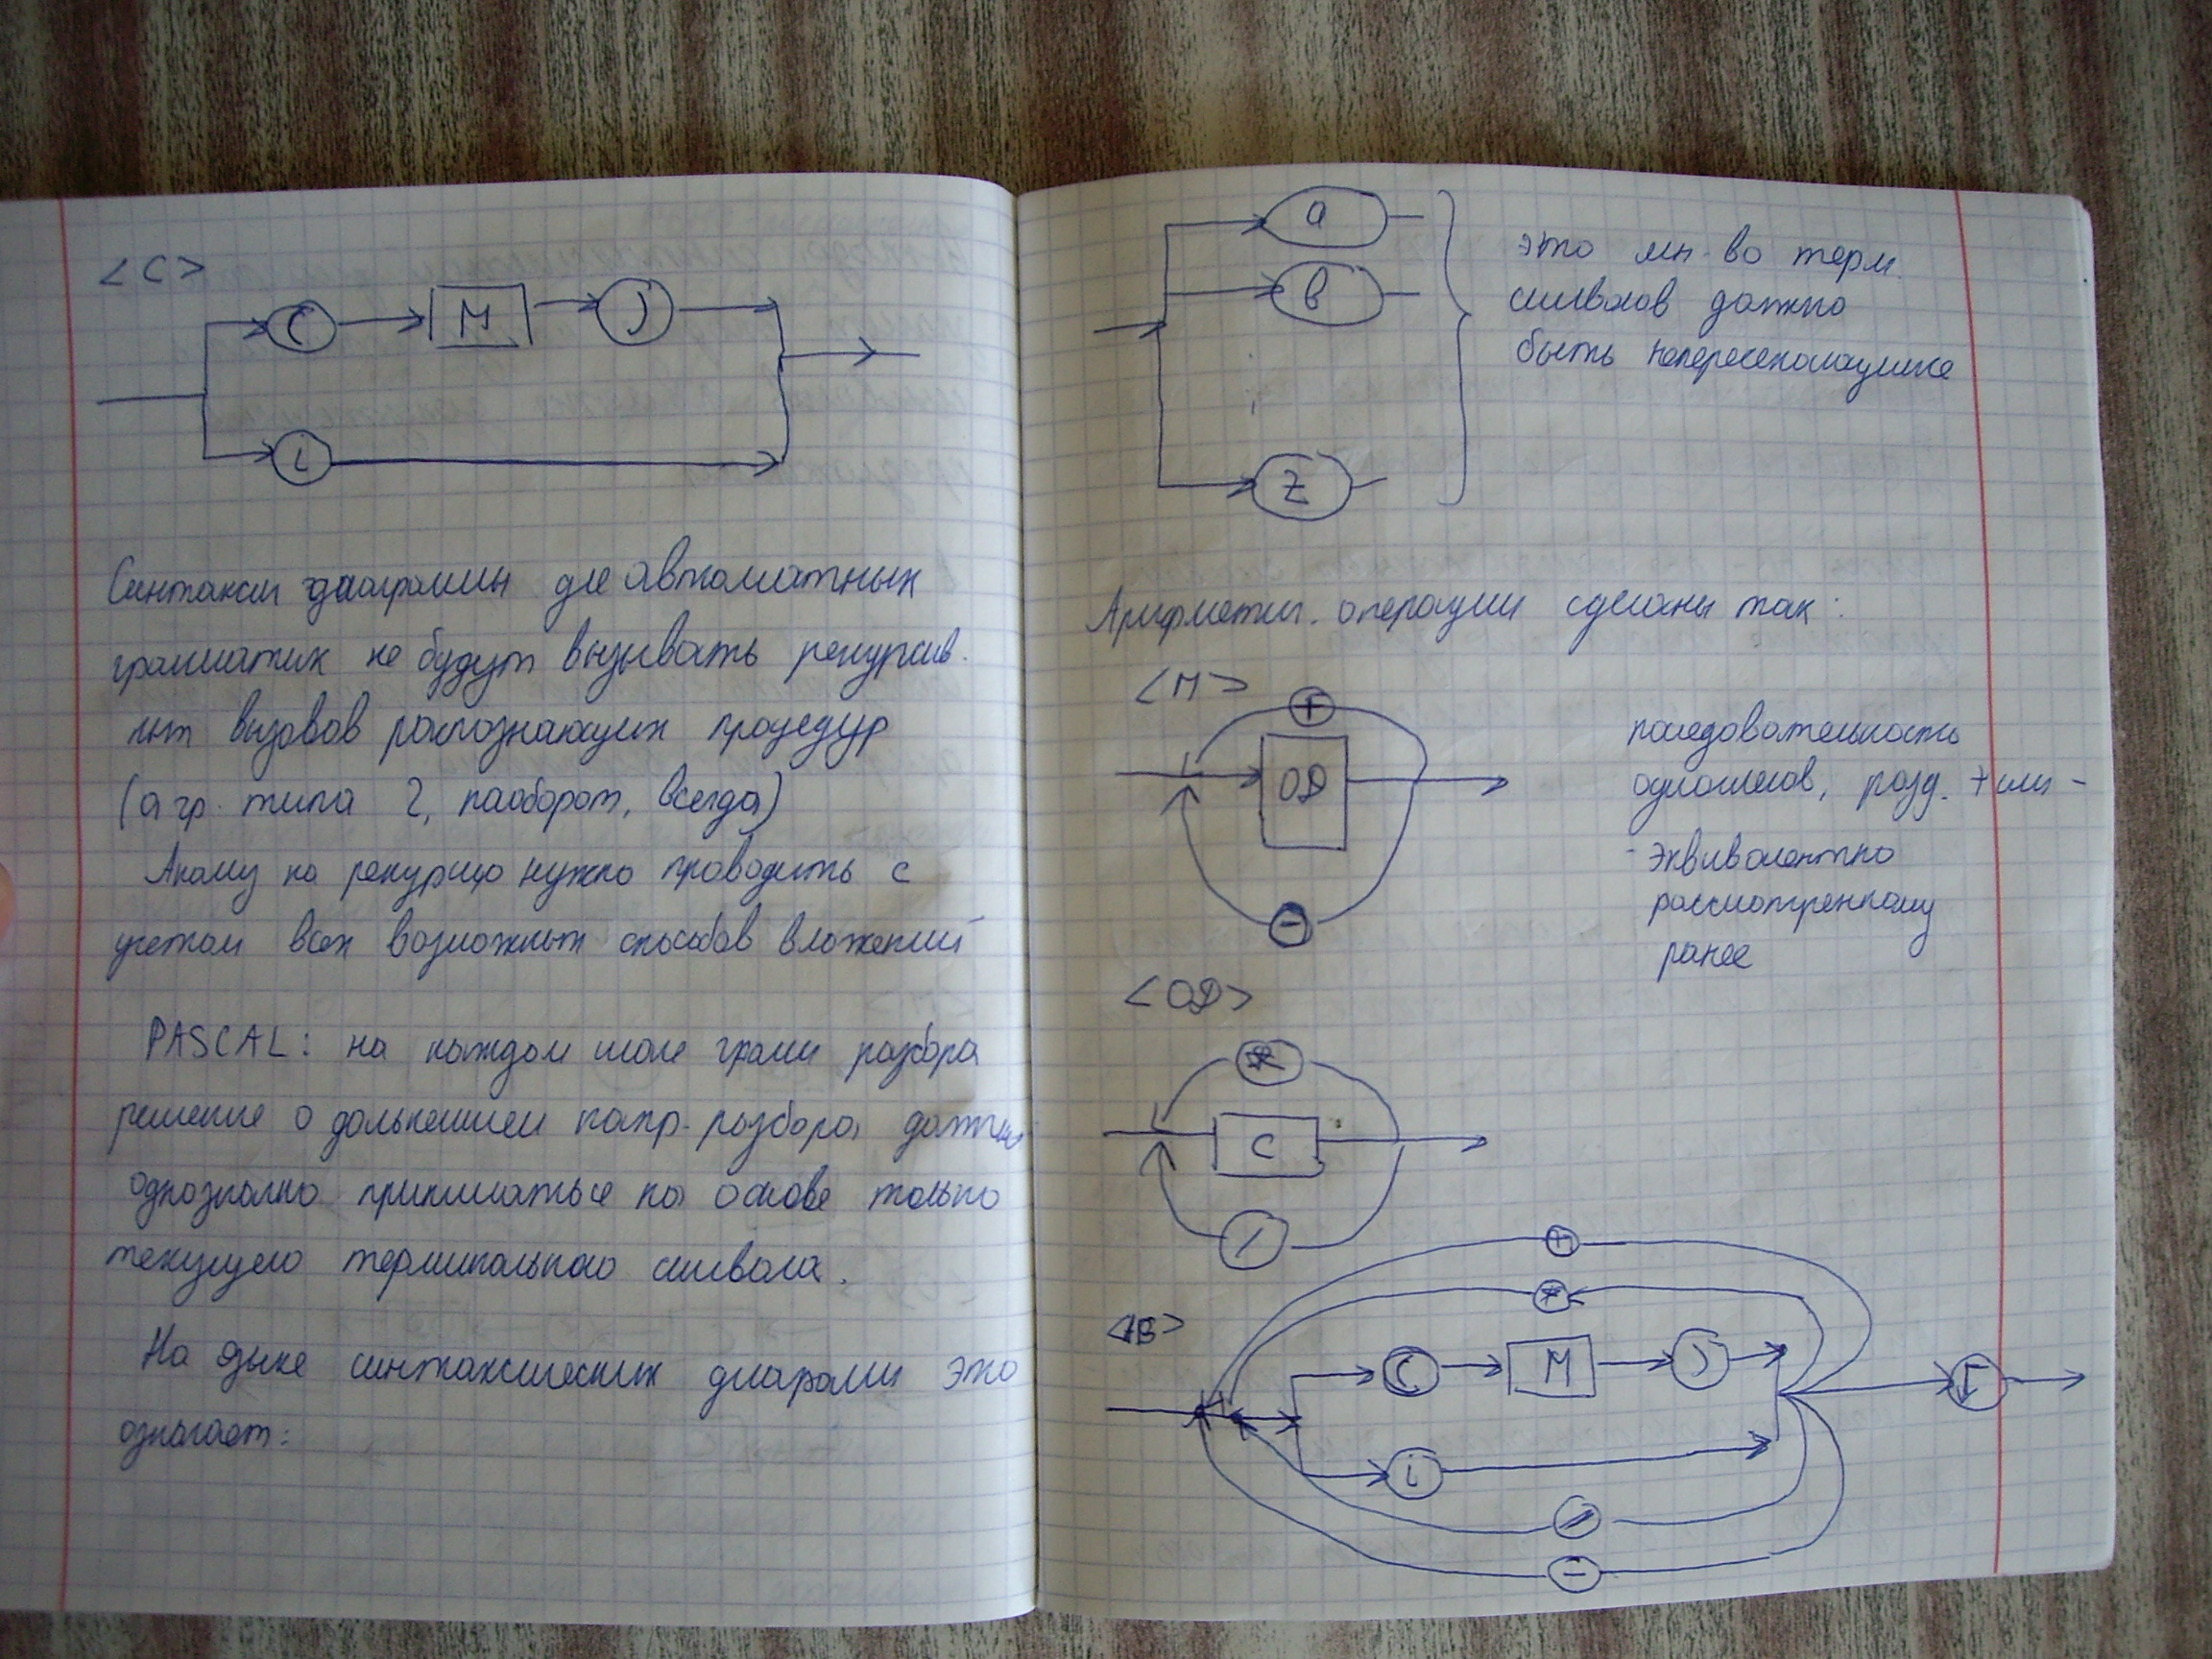 <C>
( M )
i
Синтаксич диаграммы для автоматных
грамматик не будут вызывать рекурсив-
ных вызовов распознающих процедур
(а гр. типа 2, наоборот, всегда)
Анализ на рекурсию нужно проводить с
учетом всех возможных способов вложений
PASCAL: на каждом шаге грамм разбора
решение о дальнейшем напр. разбора должно
однозначно приниматься на основе только
текущего терминального символа.
На языке синтаксических диаграмм это
означает:
a
b
z
это мн-во терм.
символов должно
быть непересекающимся
Арифметич. операции сделаны так:
<M>
+
ОД
-
последовательность
одночленов, разд. + или -
- эквивалентно
рассмотренному
ранее
<ОД>
*
C
/
<В>
+
*
( M )
i
/
-